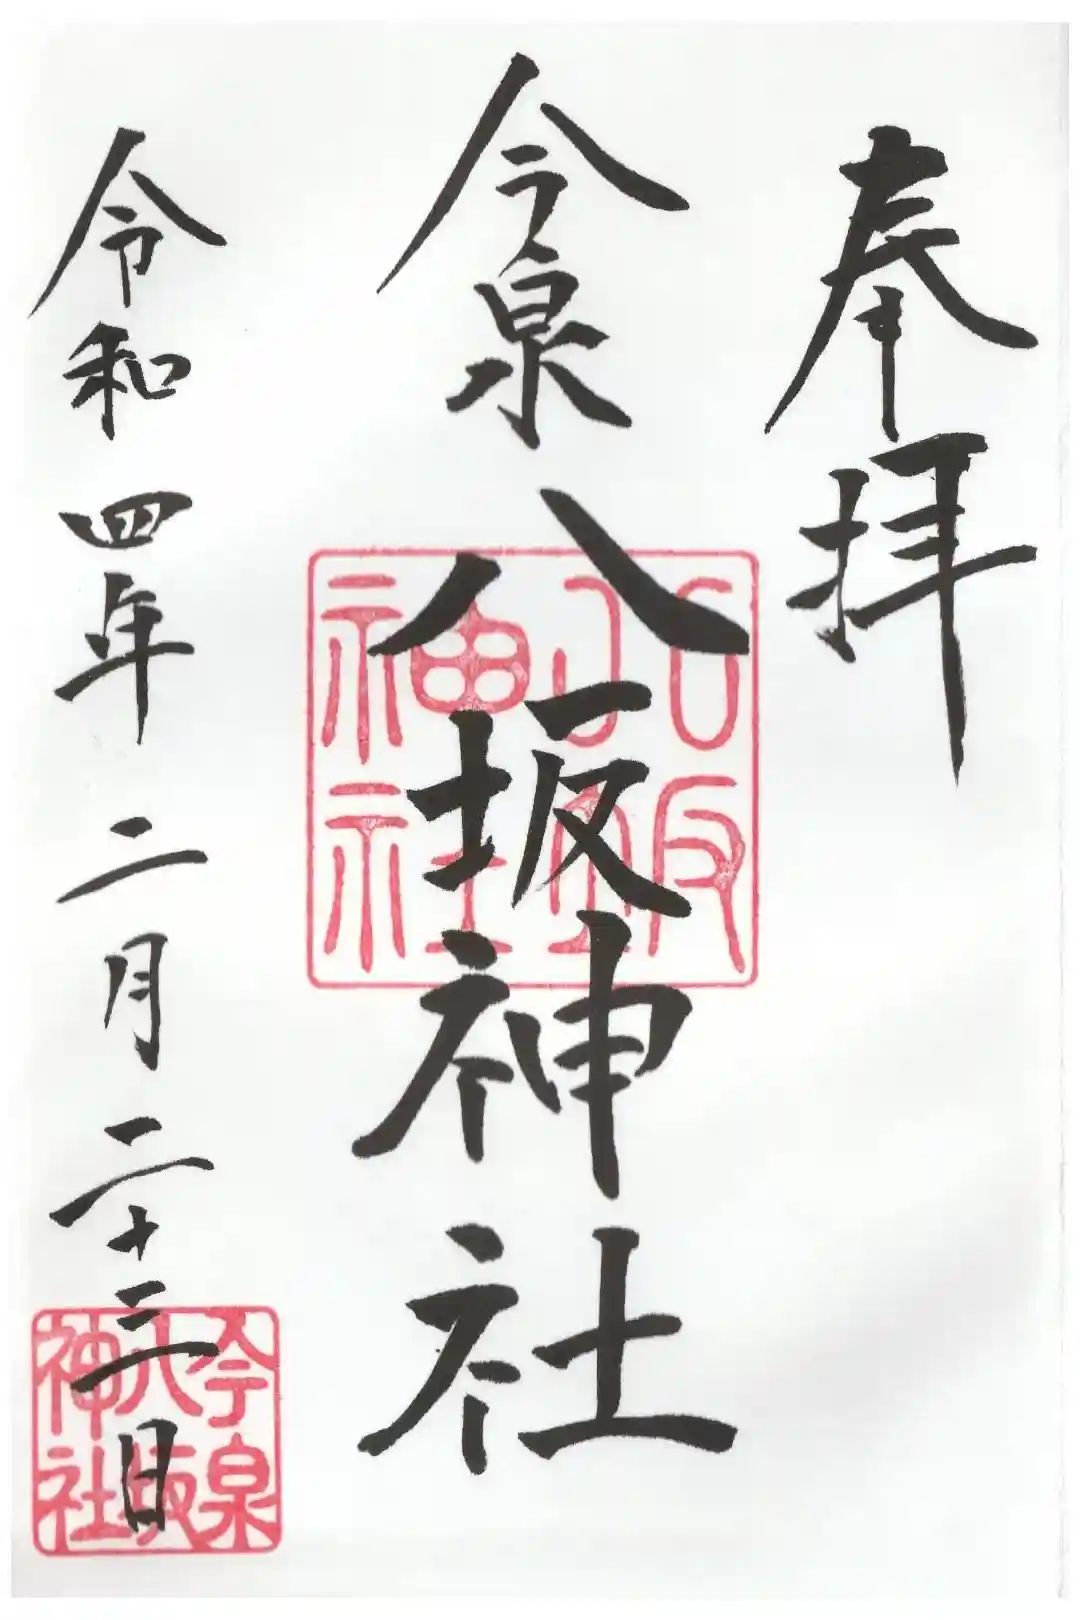 奉拝
今泉八坂神社
令和四年二月二十三日
八坂神社
今泉八坂神社